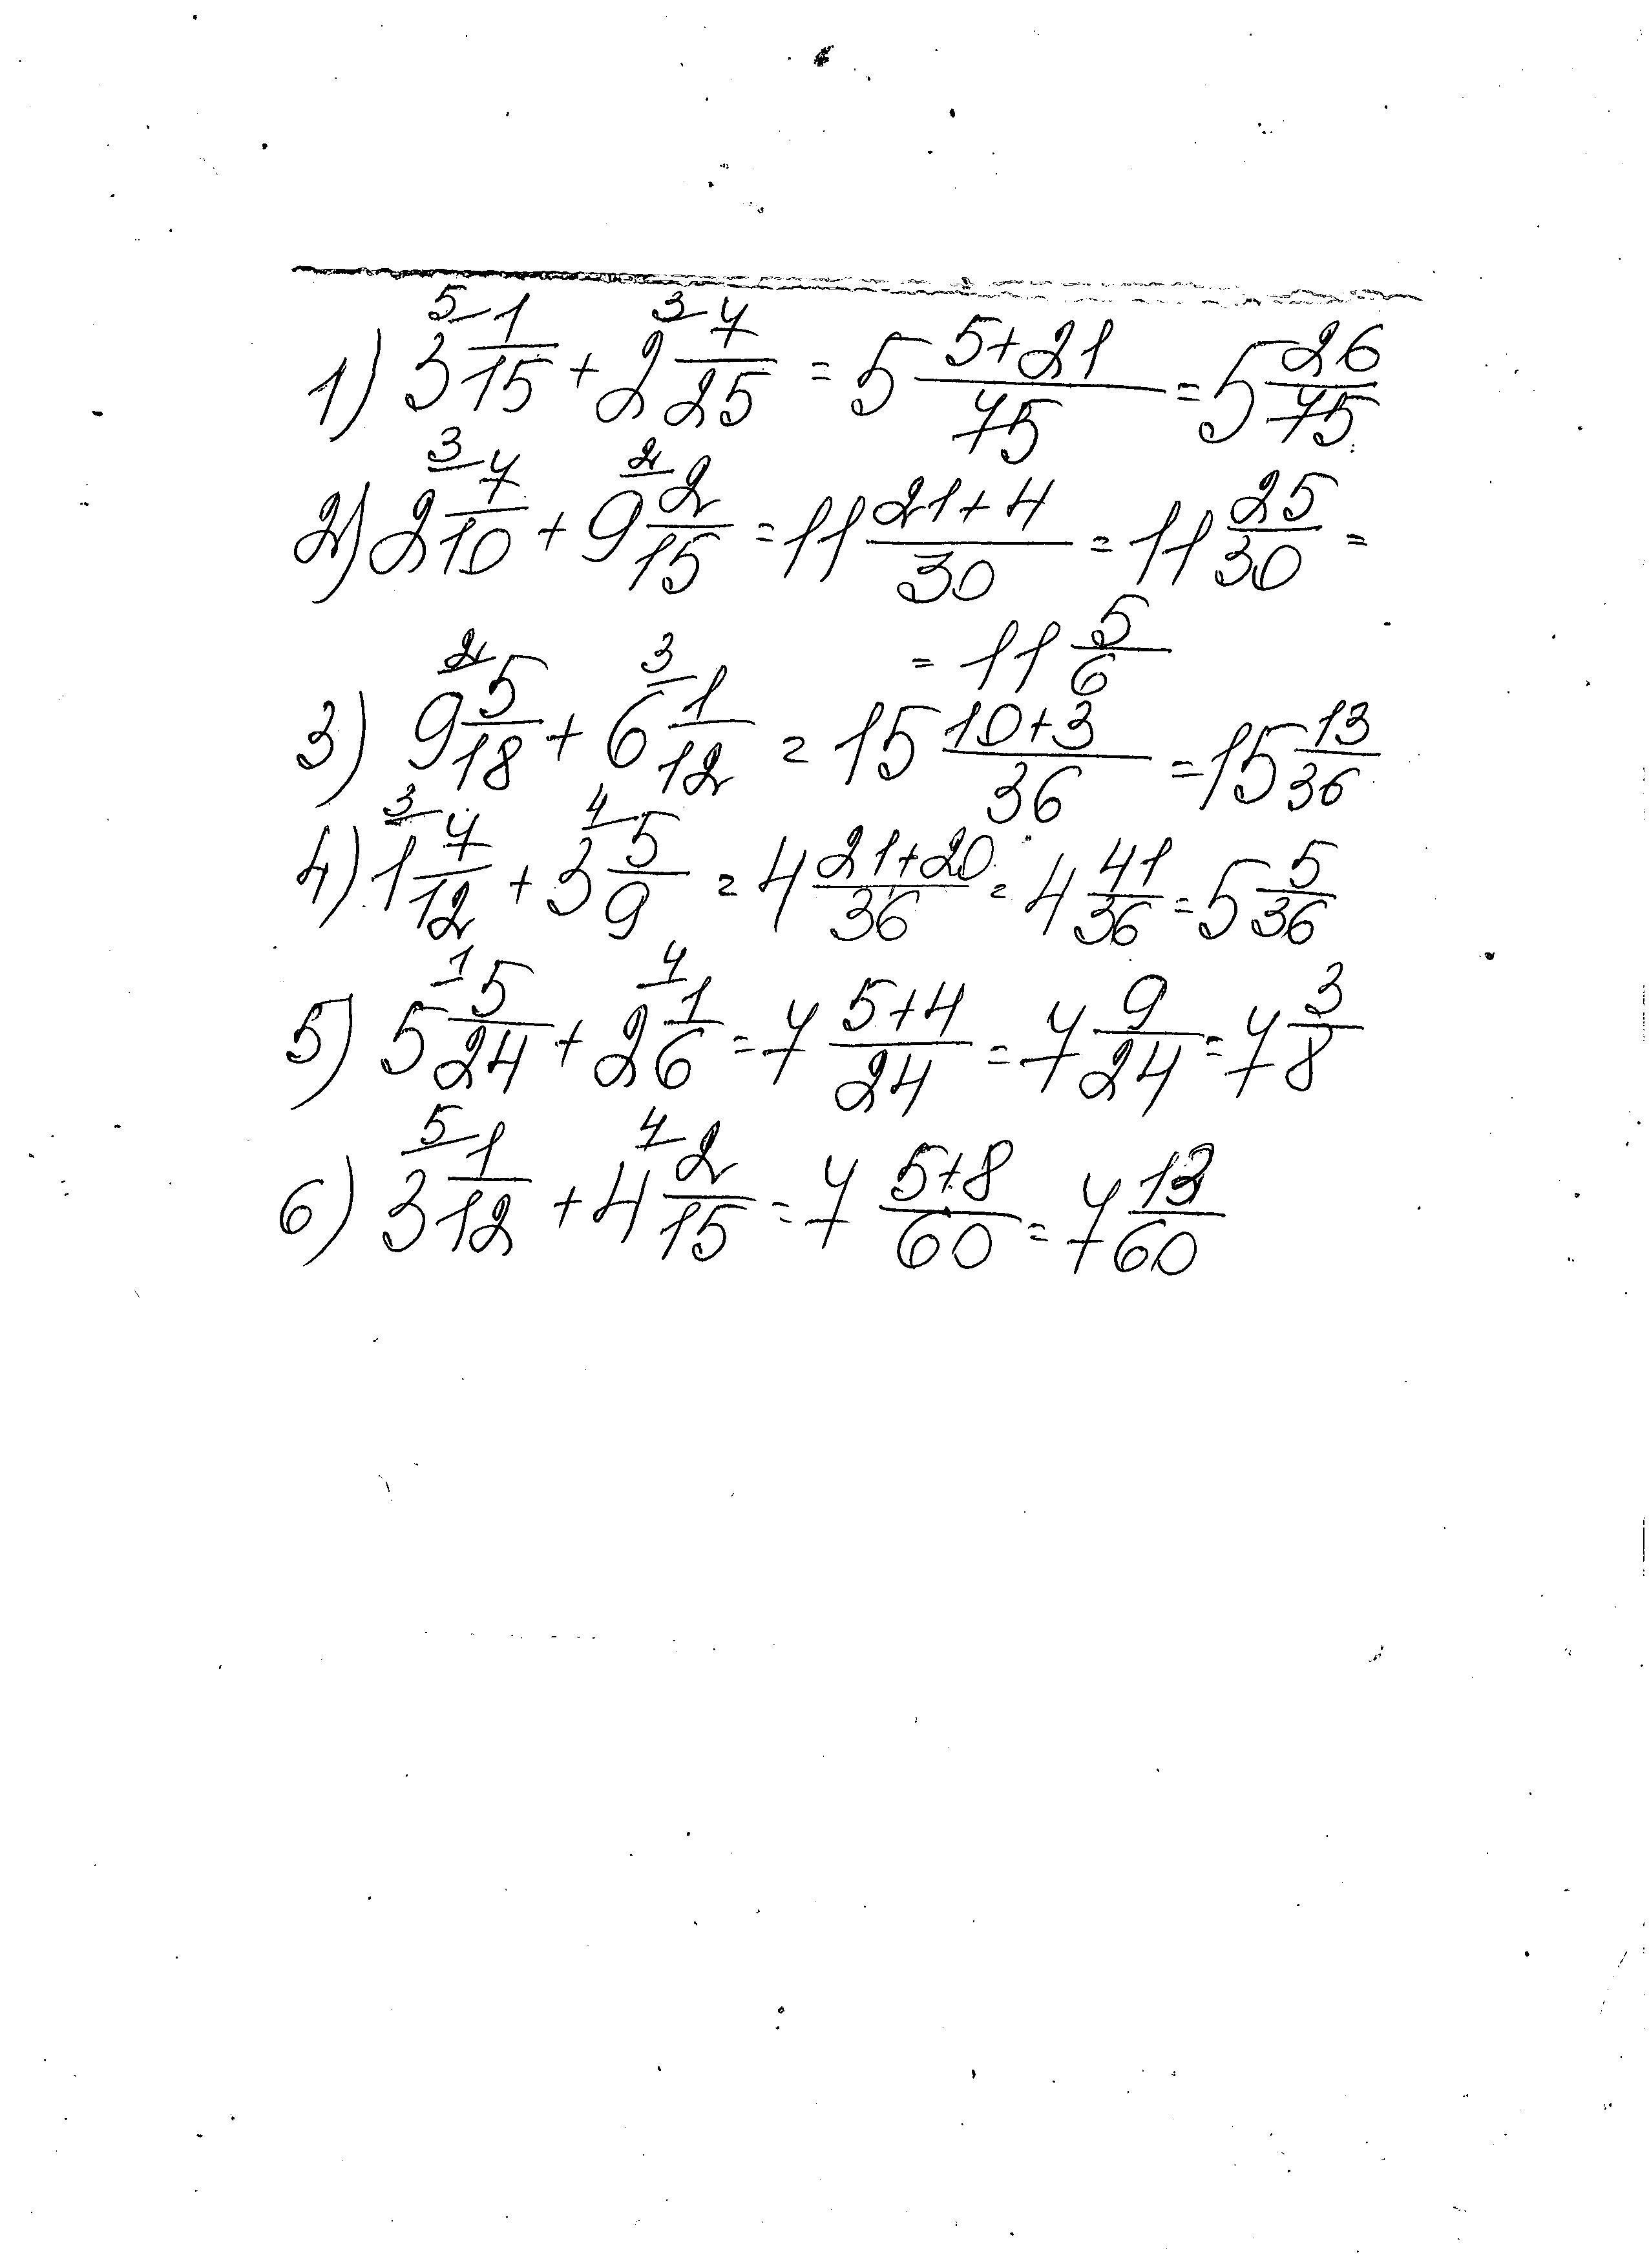 1) 3 5/ 1/15 + 2 3/ 7/25 = 5 (5+21)/75 = 5 26/75
2) 2 3/ 7/10 + 9 2/ 2/15 = 11 (21+4)/30 = 11 25/30 =
= 11 5/6
3) 9 2/ 5/18 + 6 3/ 1/12 = 15 (10+3)/36 = 15 13/36
4) 1 3/ 7/12 + 3 4/ 5/9 = 4 (21+20)/36 = 4 41/36 = 5 5/36
5) 5 1/ 5/24 + 2 4/ 1/6 = 7 (5+4)/24 = 7 9/24 = 7 3/8
6) 3 5/ 1/12 + 4 4/ 2/15 = 7 (5+8)/60 = 7 13/60